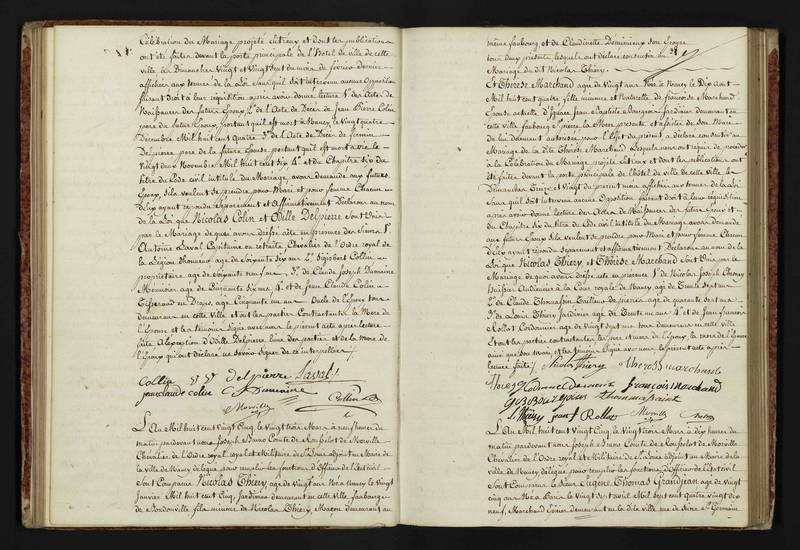 Célébration du Mariage projeté entr'eux et dont les publications
ont été faites devant la porte principale de l'hôtel de ville de cette
ville les Dimanches Vingt et Vingt sept du mois de février dernier
affichées aux termes de la Loi sans qu'il soit intervenu aucune Opposition
faisant droit à leur réquisition après avoir donné lecture 1° des Actes de
Naissances des futurs Epoux 2° de l'Acte de Décès de Jean Pierre Colin
père du futur Epoux portant qu'il est mort à Nancy le vingt quatre
Décembre Mil huit cent quatre 3° de l'Acte de Décès de firmin
Delpierre père de la future Epouse portant qu'il est mort
Vingt deux Novembre Mil huit cent six 4° et du Chapitre six du
titre du Code civil intitulé du Mariage, avons demandé aux futurs
Epoux, s'ils veulent se prendre pour Mari et pour femme Chacun
d'Eux ayant répondu séparément et affirmativement Déclarons au nom
de la Loi que Nicolas Colin et Odille Delpierre sont Unis
par le Mariage de quoi avons dressé acte en présence des Sieurs 1°
Antoine Laval Capitaine en retraite Chevalier de l'Ordre royal de
la Légion d'honneur âgé de soixante six ans 2° Sigisbert Collin
propriétaire âgé de soixante neuf ans 3° de Claude Joseph Dumaine
Menuisier âgé de Cinquante six ans 4° et de Jean Claude Colin
Tisserand en Draps, âgé Cinquante un ans Oncle de l'Epoux tous
demeurant en cette Ville et ont les parties Contractantes la Mère de
l'Epouse et les témoins signé avec nous le présent acte après lecture
faite à l'exception d'Odille Delpierre l'une des parties et de la Mère de
l'Epoux qui ont déclaré ne savoir signer de ce interpellées
Collin Delpierre Laval
jean claude colin Dumaine
Morville Collin
L'An Mil huit cent Vingt Cinq, le vingt trois Mars à neuf heures du
matin pardevant nous Joseph Bruno Comte de Rousselot de Morville
Chevalier de l'Ordre royal et Militaire de St Louis adjoint au Maire de
la ville de Nancy délégué pour remplir les fonctions d'Officier de l'Etat civil
Sont Comparus Nicolas Thiéry, âgé de vingt ans Né à Nancy le vingt
Janvier Mil huit cent Cinq, Jardinier demeurant en cette Ville, faubourg
de Boudonville fils mineur de Nicolas Thiéry, Maçon demeurant au
même faubourg et de Claudinette Demimieux son Epouse
tous deux présents lesquels ont déclaré consentir au
Mariage du dit Nicolas Thiéry.
Et Thérèse Marchand âgée de vingt ans Née à Nancy le Dix Août
Mil huit cent quatre fille mineure et Naturelle de françoise Marchand
Epouse actuelle d'Hylaire Jean Baptiste Jardinier demeurant en
cette Ville faubourg St pierre, la Mère présente et assistée de son Mari
de lui dûment autorisée pour l'effet du présent a déclaré consentir au
Mariage de la dite Thérèse Marchand Lesquels nous ont requis de procéder
à la Célébration du Mariage projeté entr'eux et dont les publications ont
été faites devant la porte principale de l'hôtel de ville de cette ville les
Dimanches Treize et Vingt du présent mois affichées aux termes de la Loi
sans qu'il soit intervenu aucune Opposition faisant droit à leur réquisition
après avoir donné lecture des Actes de Naissances des futurs Epoux et
du Chapitre six du titre du Code civil intitulé du Mariage avons demandé
aux futurs Epoux s'ils veulent se prendre pour Mari et pour femme Chacun
d'Eux ayant répondu séparément et affirmativement Déclarons au nom de la
Loi que Nicolas Thiéry et Thérèse Marchand sont Unis par le
Mariage de quoi avons dressé acte en présence 1° de Nicolas Joseph
huissier Audiencier à la Cour royale de Nancy âgé de Trente sept ans
2° de Claude Thomassin Tailleur de pierres âgé de quarante sept ans
3° de Thiéry Jardinier âgé de Trente un ans 4° et de Jean francois
Rollot Cordonnier âgé de vingt sept ans tous demeurant en cette Ville
Et ont les parties contractantes les père et mère de l'Epoux, la mère de l'Epouse
ainsi que son mari et les témoins signé avec nous le présent acte après
lecture faite Nicolas Thiéry Therese marchand
Thiery françois marchand
thomassaint
Thiery jean f Rollot Morville
L'An Mil huit cent Vingt Cinq, le vingt trois Mars à dix heures du
matin pardevant nous Joseph Bruno Comte de Rousselot de Morville
Chevalier de l'Ordre royal et Militaire de St Louis adjoint au Maire de la
ville de Nancy délégué pour remplir les fonctions d'Officier de l'Etat civil
Sont Comparus le Sieur Eugène Thomas Grandjean âgé de vingt
cinq ans Né à le vingt sept avril Mil sept cent quatre vingt dix
neuf, Marchand Epicier demeurant en la dite ville rue de